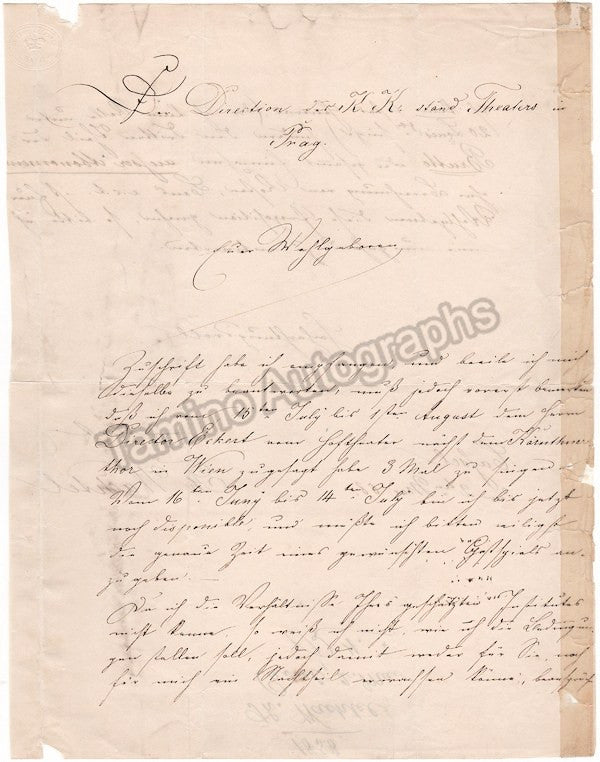 Der Direction des K. K. ständ Theaters in
Prag.
Euer Wohlgeboren
Zuschrift habe ich empfangen und beeile ich mich
dieselbe zu beantworten, muß jedoch vorerst bemerken
daß ich vom 15ten July bis 1sten August dem Herrn
Director Eckert vom Hoftheater nächst dem Kärnthner-
thor in Wien zugesagt habe 3 Mal zu singen.
Vom 16ten Juny bis 14ten July bin ich bis jetzt
noch disponible, und müßte ich bitten eiligst
die genaue Zeit eines gewünschten Gastspiels an-
zugeben. —
Da ich die Verhältnisse Ihres geschätzten Institutes
nicht kenne, so weiß ich nicht, wie ich die Bedingun-
gen stellen soll, jedoch damit weder für Sie, noch
für mich ein Nachtheil erwachsen könne,
Tamino Autographs